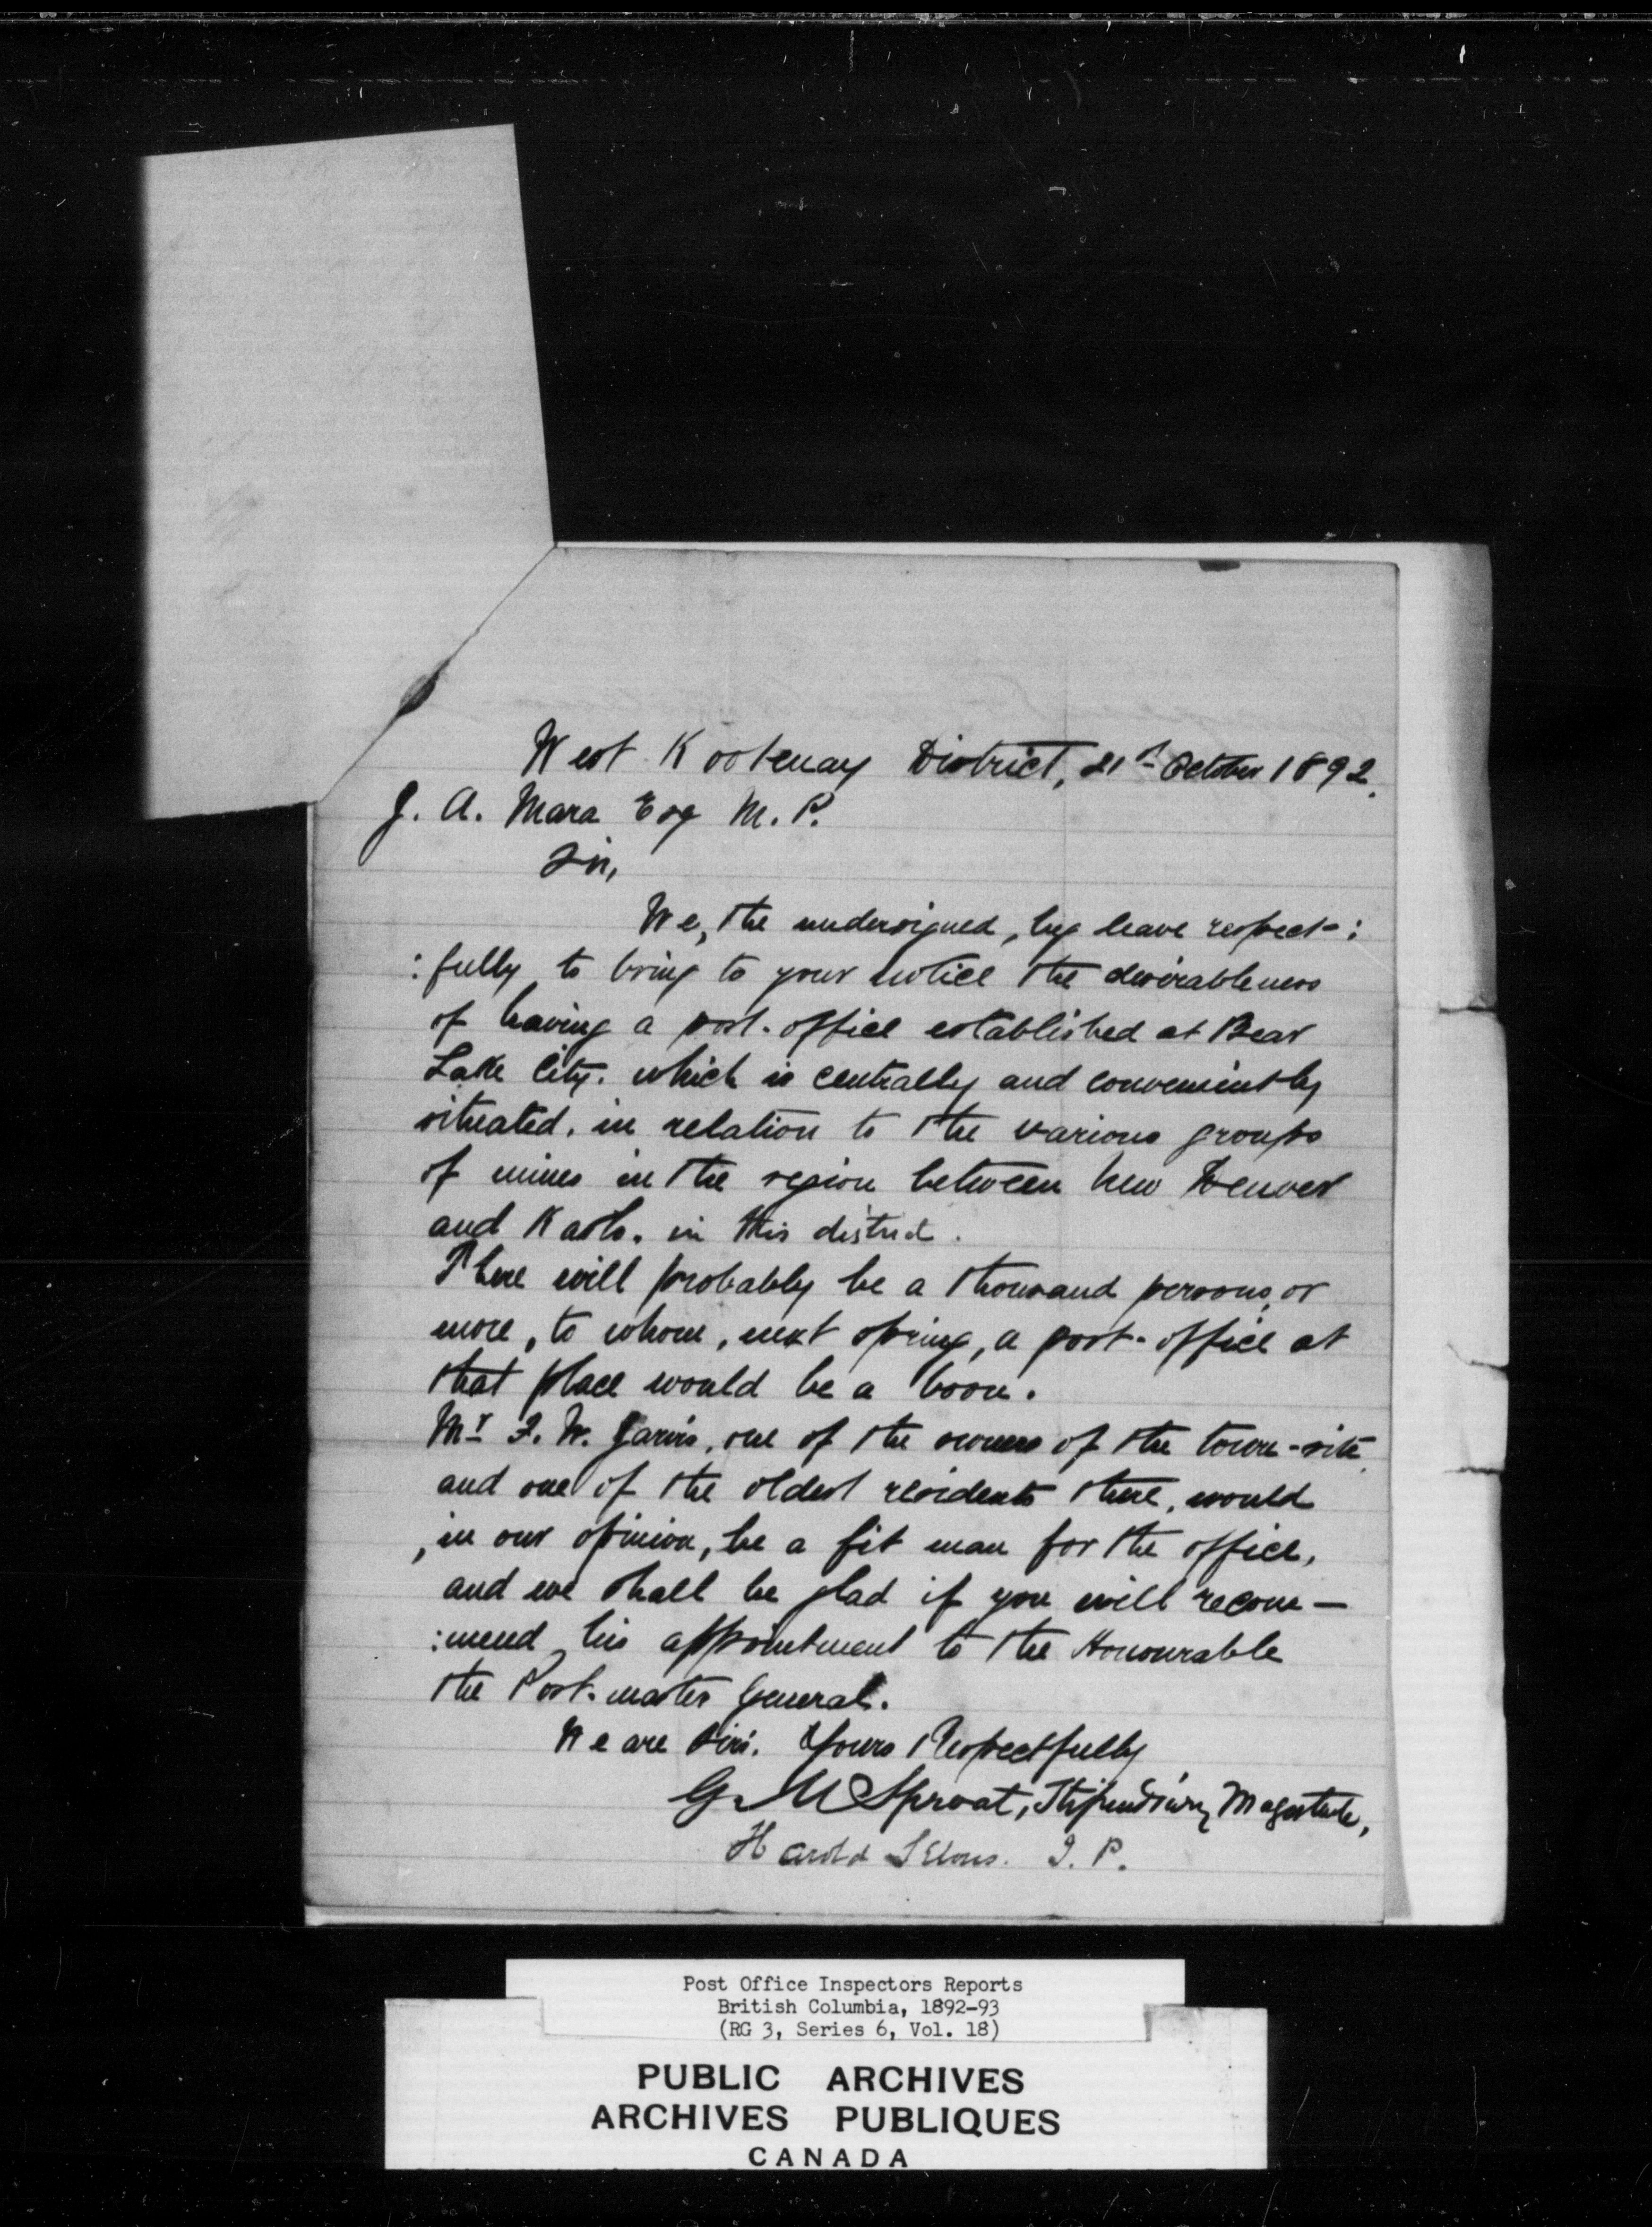 West Kootenay District, 21st October 1892.
J. A. Mara Esq M. P.
Sir,
We, the undersigned, beg leave respect-:
:fully to bring to your notice the desirableness
of having a post-office established at Bear
Lake City. which is centrally and conveniently
situated. in relation to the various groups
of mines in the region between New Denver
and Kaslo. in this district.
There will probably be a thousand persons, or
more, to whom, next spring, a post-office at
that place would be a boon.
Mr F. W. Jarvis, one of the owners of the town-site
and one of the oldest residents there, would
, in our opinion, be a fit man for the office,
and we shall be glad if you will recom—
:mend his appointment to the Honourable
the Post-master General.
We are Sir. Yours Respectfully
G. M Sproat, Stipendiary Magistrate,
Harold Selous. J. P.
Post Office Inspectors Reports
British Columbia, 1892-93
(RG 3, Series 6, Vol. 18)
PUBLIC ARCHIVES
ARCHIVES PUBLIQUES
CANADA